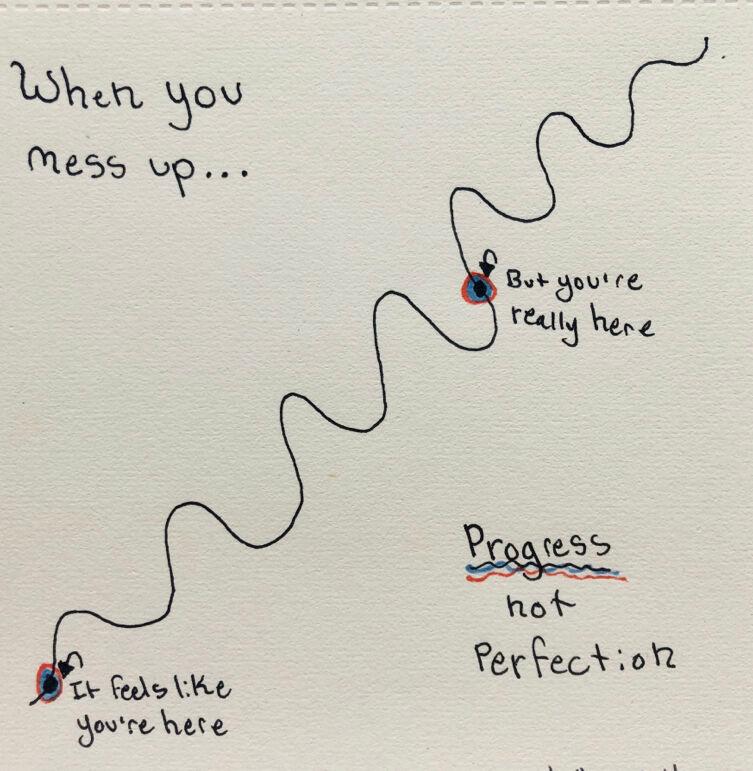 When you
mess up...
But you're
really here
Progress
not
Perfection
It feels like
you're here